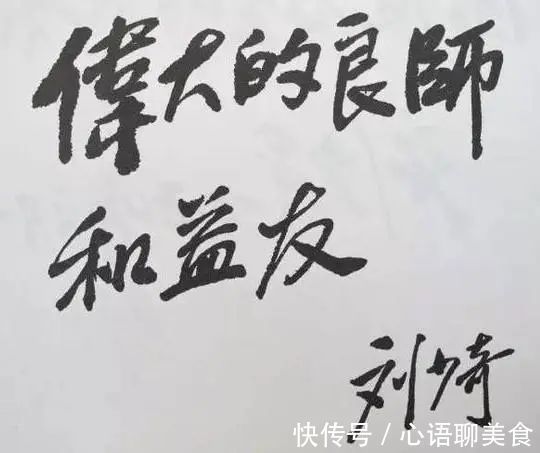 偉大的良師
和益友
刘少奇
快传号／心语聊美食